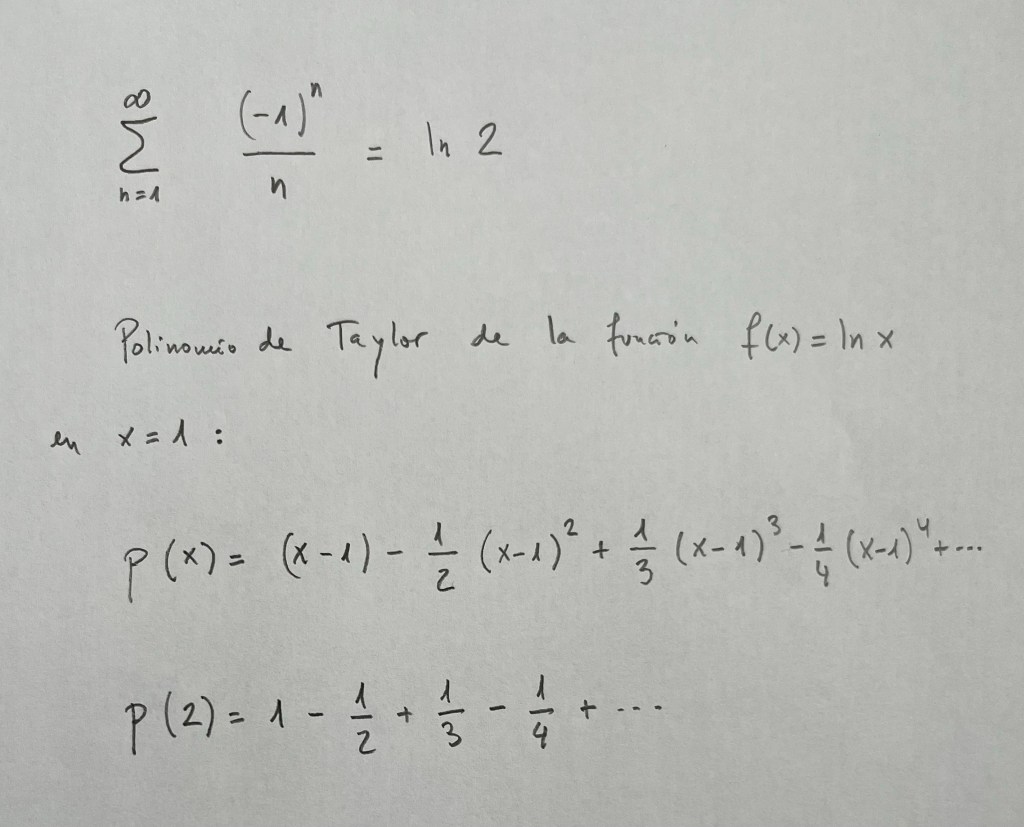 ∞
∑ (-1)ⁿ/n = ln 2
n=1
Polinomio de Taylor de la función f(x) = ln x
en x = 1 :
P(x) = (x-1) - 1/2 (x-1)² + 1/3 (x-1)³ - 1/4 (x-1)⁴ + ...
P(2) = 1 - 1/2 + 1/3 - 1/4 + ...